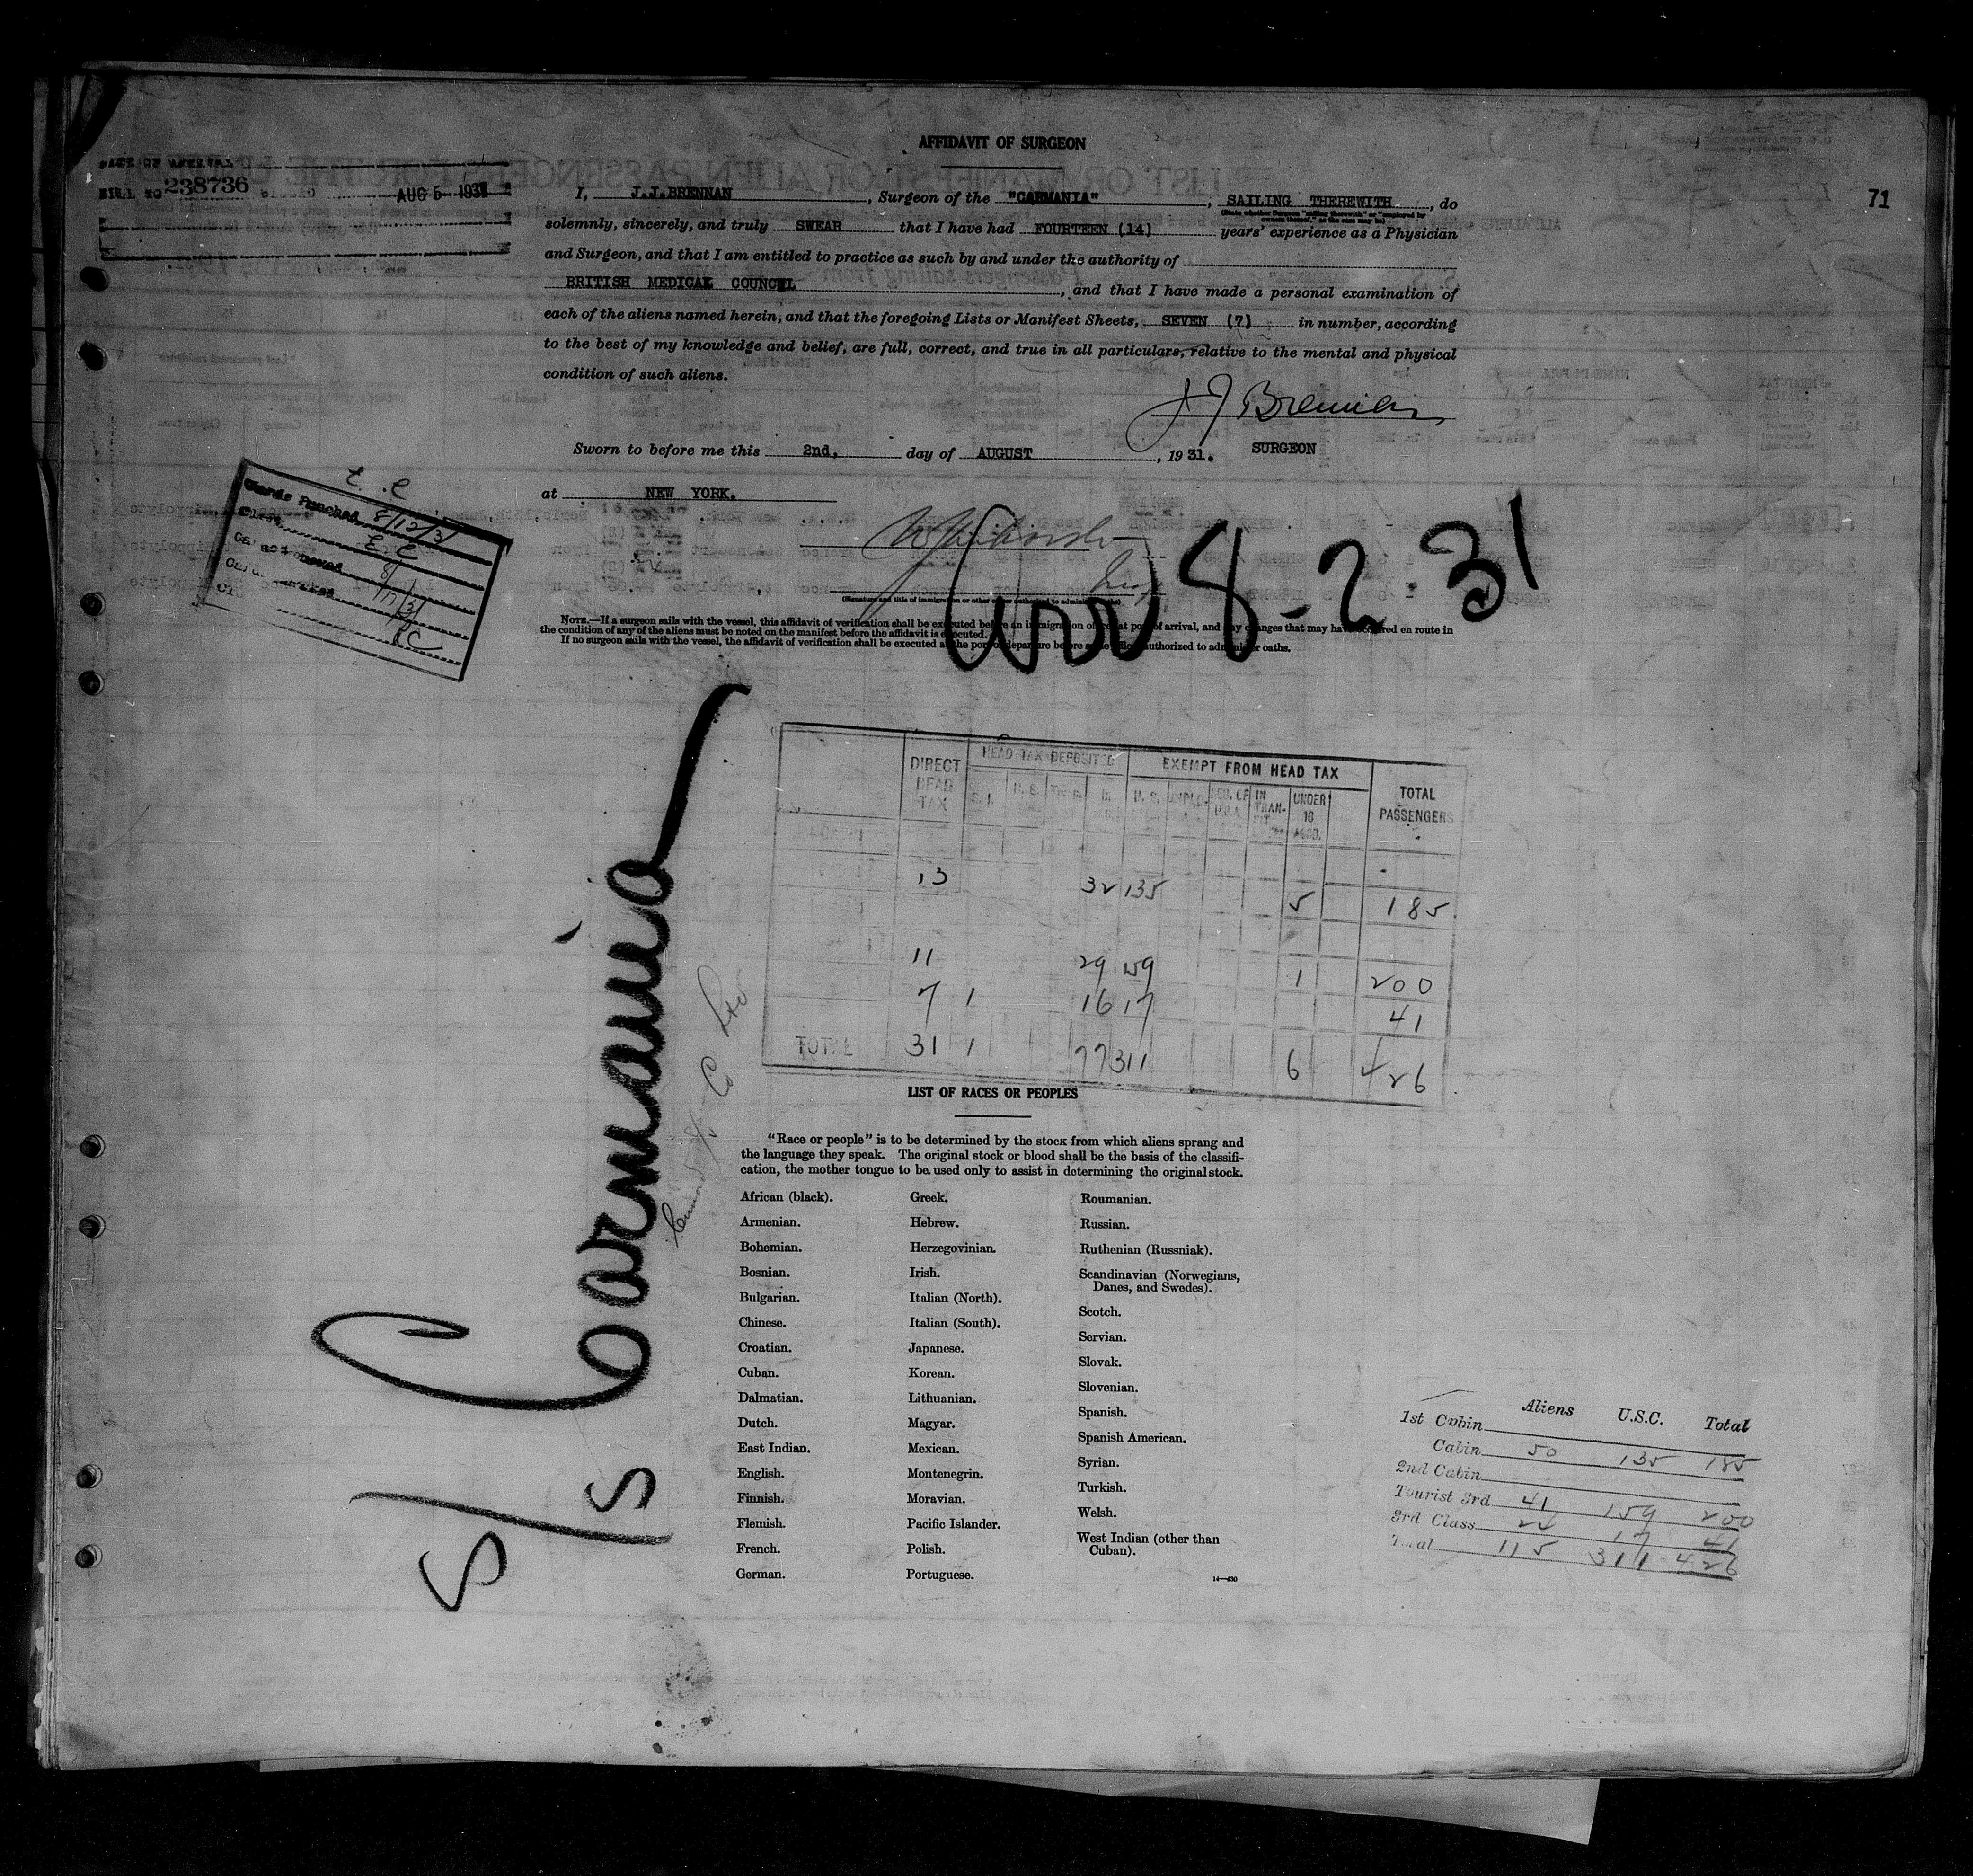 AFFIDAVIT OF SURGEON
DATE OF ARRIVAL
BILL NO 238736 AUG 5 - 1931
71
I, J.J.BRENNAN, Surgeon of the "CARMANIA", SAILING THEREWITH, do
(State whether Surgeon "sailing therewith" or "employed by owners thereof," as the case may be.)
solemnly, sincerely, and truly SWEAR that I have had FOURTEEN (14) years' experience as a Physician
and Surgeon, and that I am entitled to practice as such by and under the authority of
BRITISH MEDICAL COUNCIL, and that I have made a personal examination of
each of the aliens named herein, and that the foregoing Lists or Manifest Sheets, SEVEN (7) in number, according
to the best of my knowledge and belief, are full, correct, and true in all particulars, relative to the mental and physical
condition of such aliens.
J J Brennan
Sworn to before me this 2nd, day of AUGUST, 1931. SURGEON
at NEW YORK.
Cards Punched 8/12/31
8/17/31
8-2-31
(Signature and title of immigration or other officer authorized to administer oaths)
NOTE.—If a surgeon sails with the vessel, this affidavit of verification shall be executed before an immigration officer at port of arrival, and any changes that may have occurred en route in
the condition of any of the aliens must be noted on the manifest before the affidavit is executed.
If no surgeon sails with the vessel, the affidavit of verification shall be executed at the port of departure before some officer authorized to administer oaths.
S/S Carmania
Cunard SS Co Ltd
DIRECT HEAD TAX
HEAD TAX DEPOSITED
EXEMPT FROM HEAD TAX
TOTAL PASSENGERS
IN TRANSIT
UNDER 16 ACCD.
13 32 135 5 185
11 29 159 1 200
7 1 16 17 41
TOTAL 31 1 77 311 6 426
LIST OF RACES OR PEOPLES
"Race or people" is to be determined by the stock from which aliens sprang and
the language they speak. The original stock or blood shall be the basis of the classifi-
cation, the mother tongue to be used only to assist in determining the original stock.
African (black).
Armenian.
Bohemian.
Bosnian.
Bulgarian.
Chinese.
Croatian.
Cuban.
Dalmatian.
Dutch.
East Indian.
English.
Finnish.
Flemish.
French.
German.
Greek.
Hebrew.
Herzegovinian.
Irish.
Italian (North).
Italian (South).
Japanese.
Korean.
Lithuanian.
Magyar.
Mexican.
Montenegrin.
Moravian.
Pacific Islander.
Polish.
Portuguese.
Roumanian.
Russian.
Ruthenian (Russniak).
Scandinavian (Norwegians,
Danes, and Swedes).
Scotch.
Servian.
Slovak.
Slovenian.
Spanish.
Spanish American.
Syrian.
Turkish.
Welsh.
West Indian (other than
Cuban).
Aliens U.S.C. Total
1st Cabin
Cabin 50 135 185
2nd Cabin
Tourist 3rd 41 159 200
3rd Class 24 17 41
Total 115 311 426